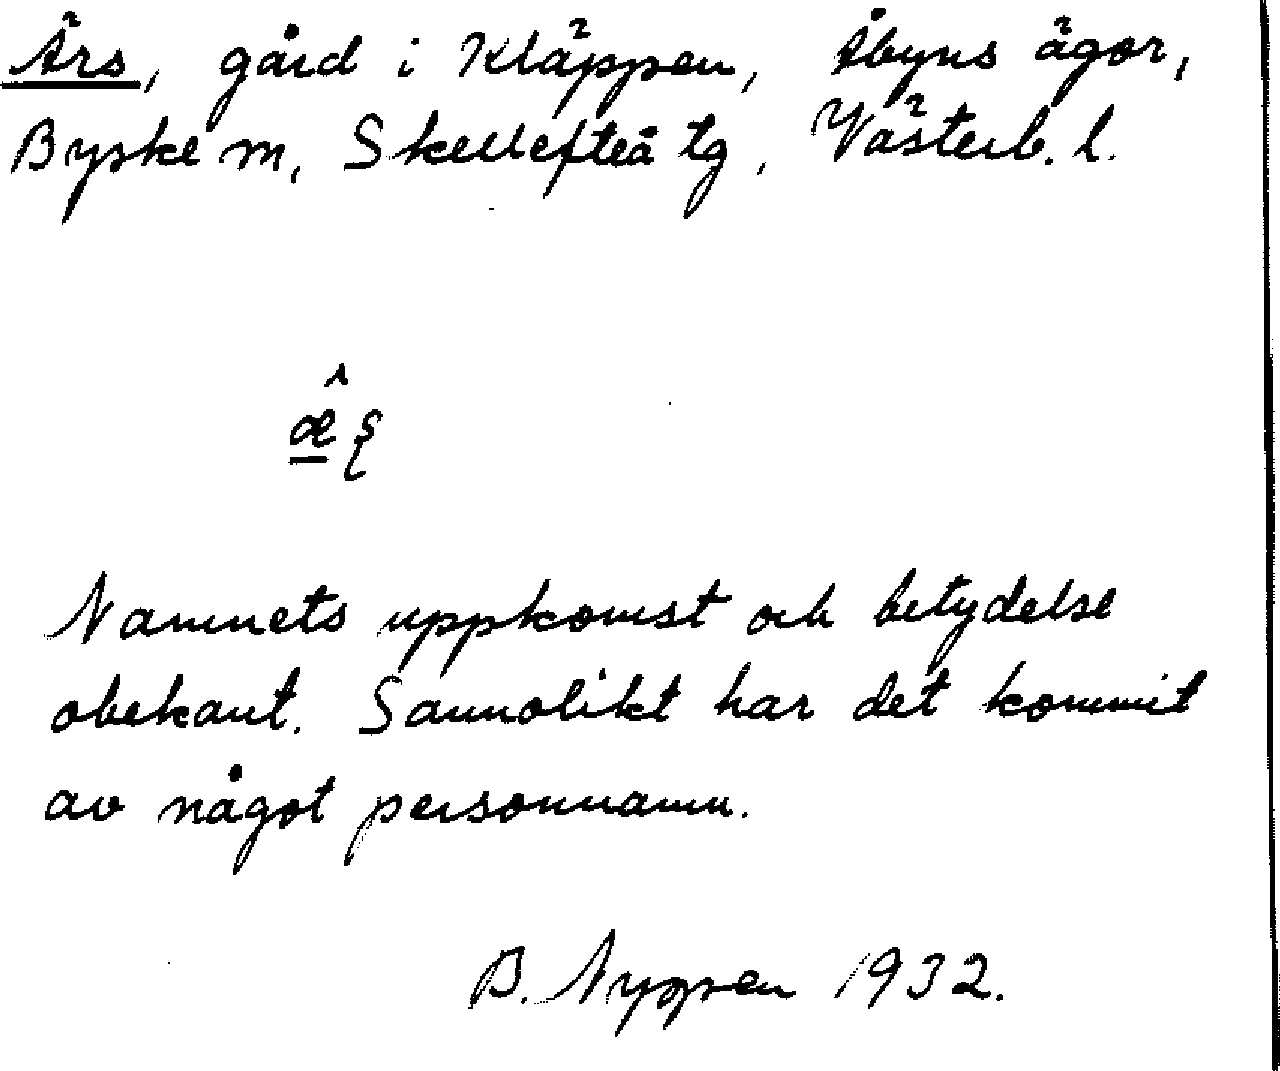 Ärs, gård i Kläppen, Åbyns ägor,
Byske m, Skellefteå tg, Västerb. l.
Namnets uppkomst och betydelse
obekant. Sannolikt har det kommit
av något personnamn.
B. 1932.